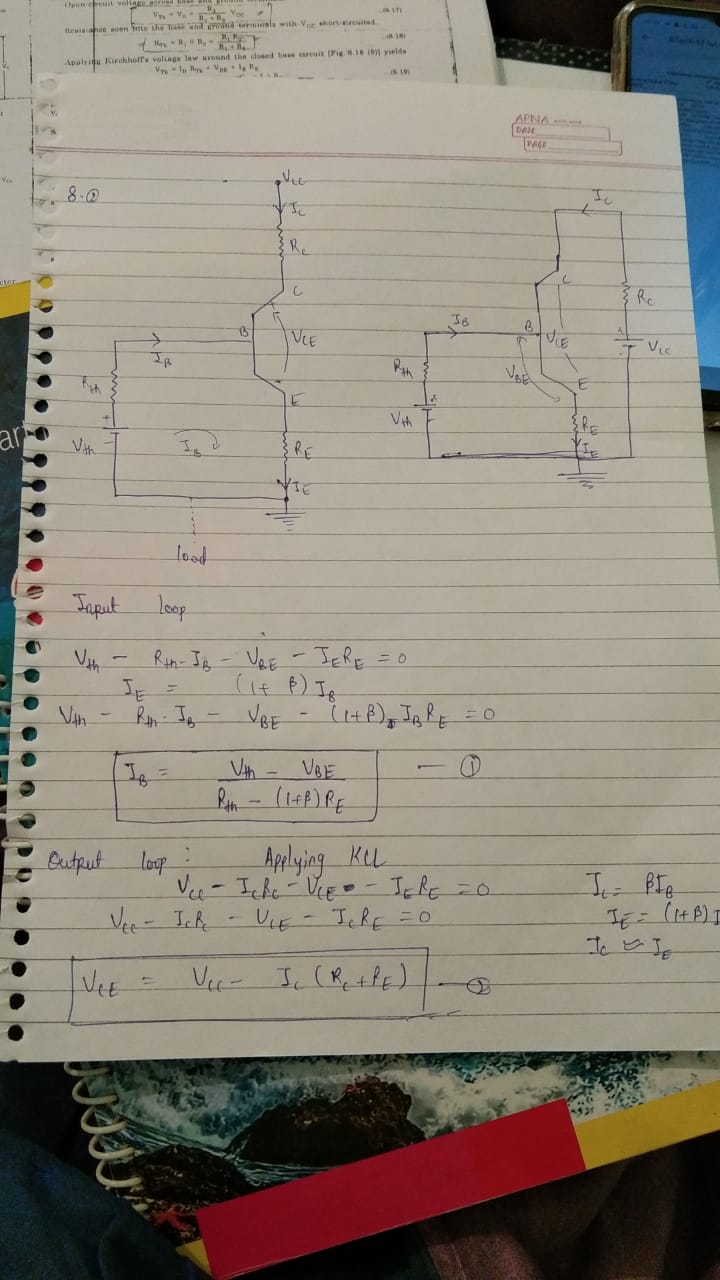 Open circuit voltage across base and ground
V_Th = V_O = R₂/(R₁ + R₂) V_CC (6.17)
Resistance seen into the base and ground terminals with V_CC short-circuited.
R_Th = R₁ || R₂ = R₁R₂/(R₁ + R₂) (6.18)
Applying Kirchhoff's voltage law around the closed base circuit [Fig 6.18 (b)] yields
V_Th = I_B R_Th + V_BE + I_E R_E (6.19)
APNA
DATE
PAGE
8.②
V_CC
I_C
R_C
C
B
V_CE
I_B
R_th
E
V_th
+
-
I_B
R_E
I_E
load
I_C
C
R_C
I_B
B
V_CE
V_CC
R_th
V_BE
E
V_th
R_E
I_E
Input loop
V_th - R_th · I_B - V_BE - I_E R_E = 0
I_E = (1+ β) I_B
V_th - R_th · I_B - V_BE - (1+β) I_B R_E = 0
I_B = (V_th - V_BE)/(R_th - (1+β) R_E) — ①
Output loop : Applying KVL
V_CC - I_C R_C - V_CE - I_E R_E = 0 I_C = β I_B
V_CC - I_C R_C - V_CE - I_C R_E = 0 I_E = (1+β) I
I_C ≈ I_E
V_CE = V_CC - I_C (R_C + R_E) — ②